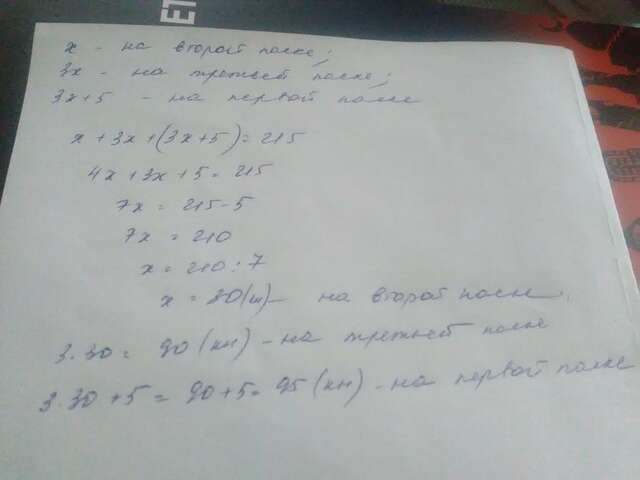 ET
x - на второй полке;
3x - на третьей полке;
3x+5 - на первой полке
x+3x+(3x+5)=215
4x+3x+5=215
7x=215-5
7x=210
x=210:7
x=30(ш)- на второй полке;
3·30=90(кн)-на третьей полке
3·30+5=90+5=95(кн)-на первой полке